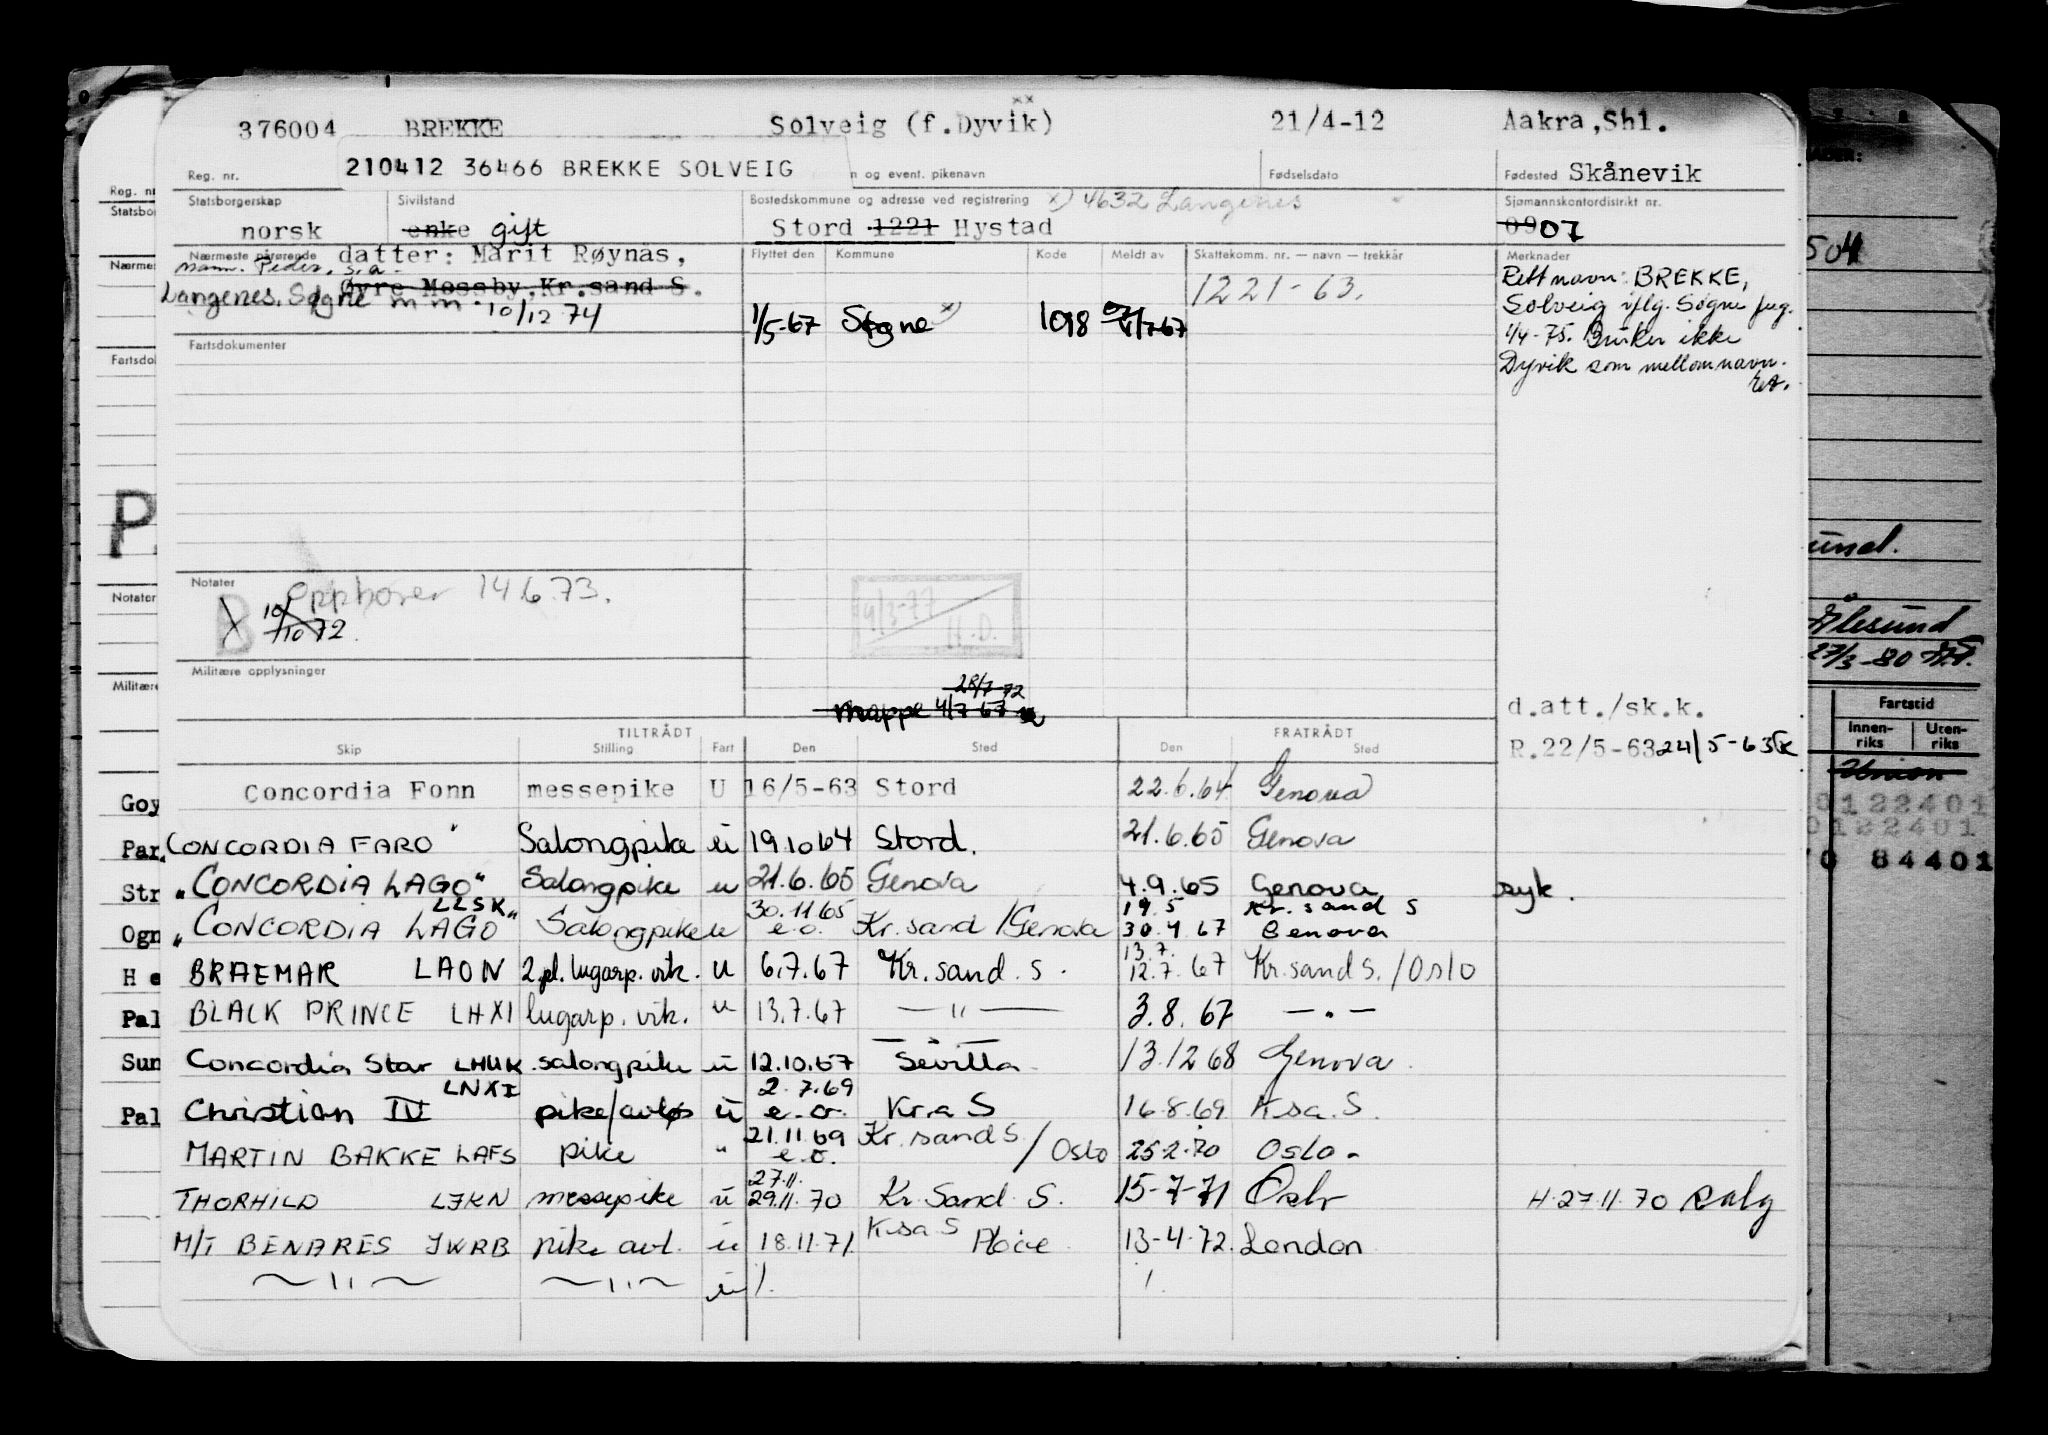 376004 BREKKE Solveig (f.Dyvik) xx 21/4-12 Aakra,Shl.
Reg. nr. 210412 36466 BREKKE SOLVEIG n og event. pikenavn Fødselsdato Fødested Skånevik
Statsborgerskap Sivilstand Bostedskommune og adresse ved registrering x) 4632 Langenes Sjømannskontordistrikt nr.
norsk enke gift Stord 1221 Hystad 0907
Nærmeste pårørende datter: Marit Røynås, Flyttet den Kommune Kode Meldt av Skattekomm. nr. — navn — trekkår Merknader
mann. Peder, s.a.
Øvre Mossby, Kr.sand S. 1221-63.
Langenes, Søgne m m. 10/12 74
1/5-67 Søgne x) 1018 07 4/7 67
Rett navn: BREKKE,
Solveig iflg. Søgne
1/4-75. Bruker ikke
Dyvik som mellomnavn.
Fartsdokumenter
Notater Opphører 14.6.73.
B 10/10 72.
4/3-77
H.D.
Militære opplysninger
28/7-72
Mappe 4/7 67
d.att./sk.k.
R.22/5-63 24/5-63
TILTRÅDT FRATRÅDT
Skip Stilling Fart Den Sted Den Sted
Concordia Fonn messepike U 16/5-63 Stord 22.6.64 Genova
"CONCORDIA FARO" Salongpike u 19.10 64 Stord. 21.6.65 Genova
"CONCORDIA LAGO" Salongpike u 21.6.65 Genova 4.9.65 Genova syk.
LLSK 30.11.65 19.5 Kr. sand S
"CONCORDIA LAGO" Salongpike u e.o. Kr. sand /Genova 30.4.67 Genova
13.7.
BRAEMAR LAON 2.pl. lugarp. vik. u 6.7.67 Kr. sand. S. 12.7.67 Kr.sand S. /Oslo
BLACK PRINCE LHXI lugarp. vik. u 13.7.67 — " — 3.8.67 — " —
Concordia Star LHUK salongpike u 12.10.67 Sevilla 13.12 68 Genova.
LNXI 2.7.69
Christian IV pike/avløs u e.o. Kr.a S 16.8.69 K.sa. S.
21.11.69
MARTIN BAKKE LAFS pike " e.o. Kr. sand S. / Oslo 25.2.70 Oslo.
27.11.
THORHILD LJKN messepike u 29.11.70 Kr. Sand S. 15-7-71 Oslo H.27.11.70 salg
M/T BENARES JWRB pike avl. u 18.11.71 K.sa S 13-4-72. London
— " — — " — u /. /.
Reg. nr
Statsbor
Nærmes
Fartsdo
P
Notater
Militære
Goy
Par
Str
Ogn
He
Pal
Sun
Pal
504
und.
Ålesund
27/3-80
Fartstid
Innen-
riks Uten-
riks
0122401
0122401
70 84401